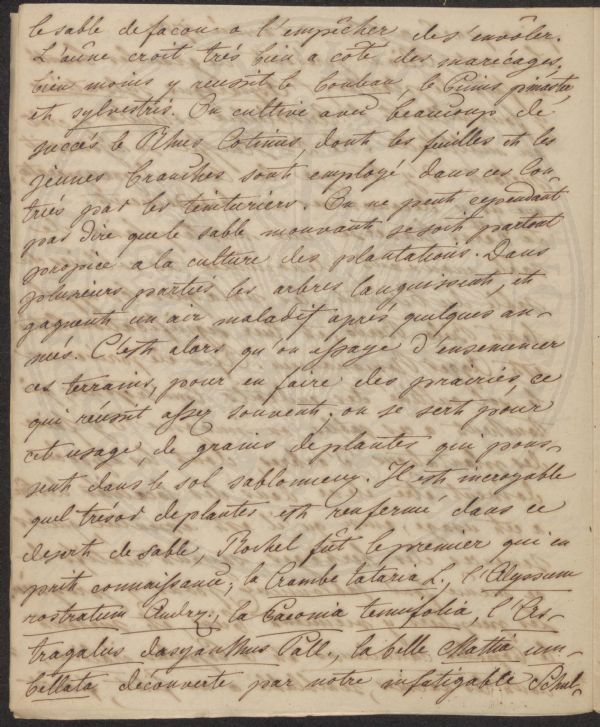 le sable de façon a l'empêcher de s'envôler.
L'aûne croit trés bien a coté des marécages,
bien moins y reussit le bouleau, le Pinus pinaster,
et sylvestris. On cultive avec beaucoup de
succés le Rhus Cotinus dont les feuilles et les
jeunes branches sont employé dans ces Con-
triés par les teinturiers. On ne peut cependant
pas dire que le sable mouvant se soit partout
propice a la culture des plantations. Dans
plusieurs partiés les arbres languissent, et
gagnent un air maladif aprés quelques an-
nés. C'est alors qu'on essaye d'ensemencer
ces terrains, pour en faire des prairiés, ce
qui reussit assez souvent; on se sert pour
cet usage, de grains de plantes qui pous-
sent dans le sol sablonneux. Il est incroyable
quel trésor de plantes est renfermé dans ce
desert de sable, Rochel fût le premier qui en
prit connaissance; la Crambe tataria L., l'Alyssum
rostratum Andrz., la Paeonia tenuifolia, l'As-
tragalus dasyanthus Pall., la belle Mattia um-
bellata decouverte par notre infatigable Schul-